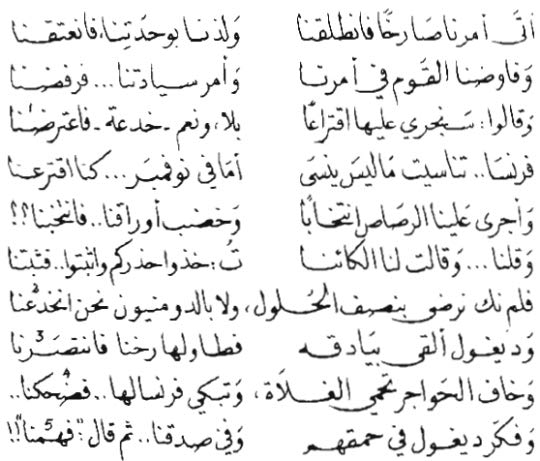 أتَى أمرنا صَارخًا فانطلقنا وَلذنا بوحدَتِنا، فانعتقنا
وَفاوضنا القَوم في أمرنا وَأمر سيادتنا... فرفضنا
وَقالوا: سَنجري عليها اقتراعًا بلا، ونعم - خدعة - فاعترضنا
فرنسَا.. تناسيت مَاليسَ ينسَى أمَا في نوفمبَر... كنا اقترعنا
وَأجرى عَلينا الرصَاص انتخابًا وَخضب أوراقنا.. فانتخبنا؟؟
وَقلنا... وَقالت لنا الكائنا تُ: خذوا حذركم واثبتوا.. فثبتنا
فلم نك نرضى بنصف الحُلول، ولا بالدومنيون نحن انخدعنا
وَديغول ألقى بيَادقه فطاولها رخنا فانتصَرنا 3
وَخاف الحَواجر تحمي الغلاَة، وَتبكي فرنسا لها.. فضحكنا.. 4
وَفكر ديغول في حمقهم وَفي صدقنا.. ثم قال: "فهمنا" 5!!